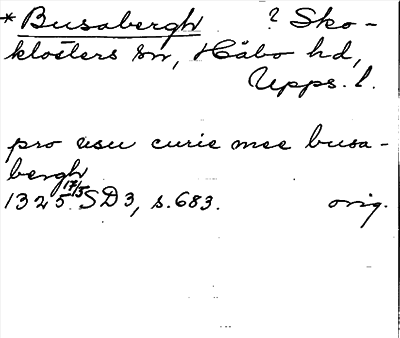 *Busabergh ? Sko-
klosters sn, Håbo hd,
Upps. l.
pro usu curie mee busa-
bergh
1325 17/5 SD3, s. 683. orig.